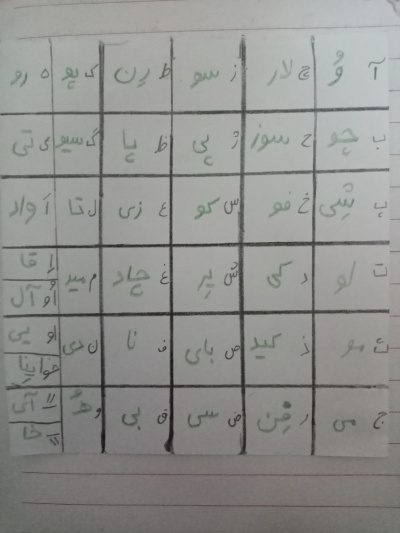 آ وُ چ لار ز سو ط رِن ک پو ه رو
ب چو ح سوز ژ پی ظ پا گ سیو ی تی
پ شِی خ فو س کو ع زی ل تا اَ واد
ت لو د کی ش پِر غ چاد م مید اِ قا
اُ آل
ث مو ذ کید ص بای ف نا ن دی او یی
ج می ر فِن ض سی ق بی و هُ ـاً آی